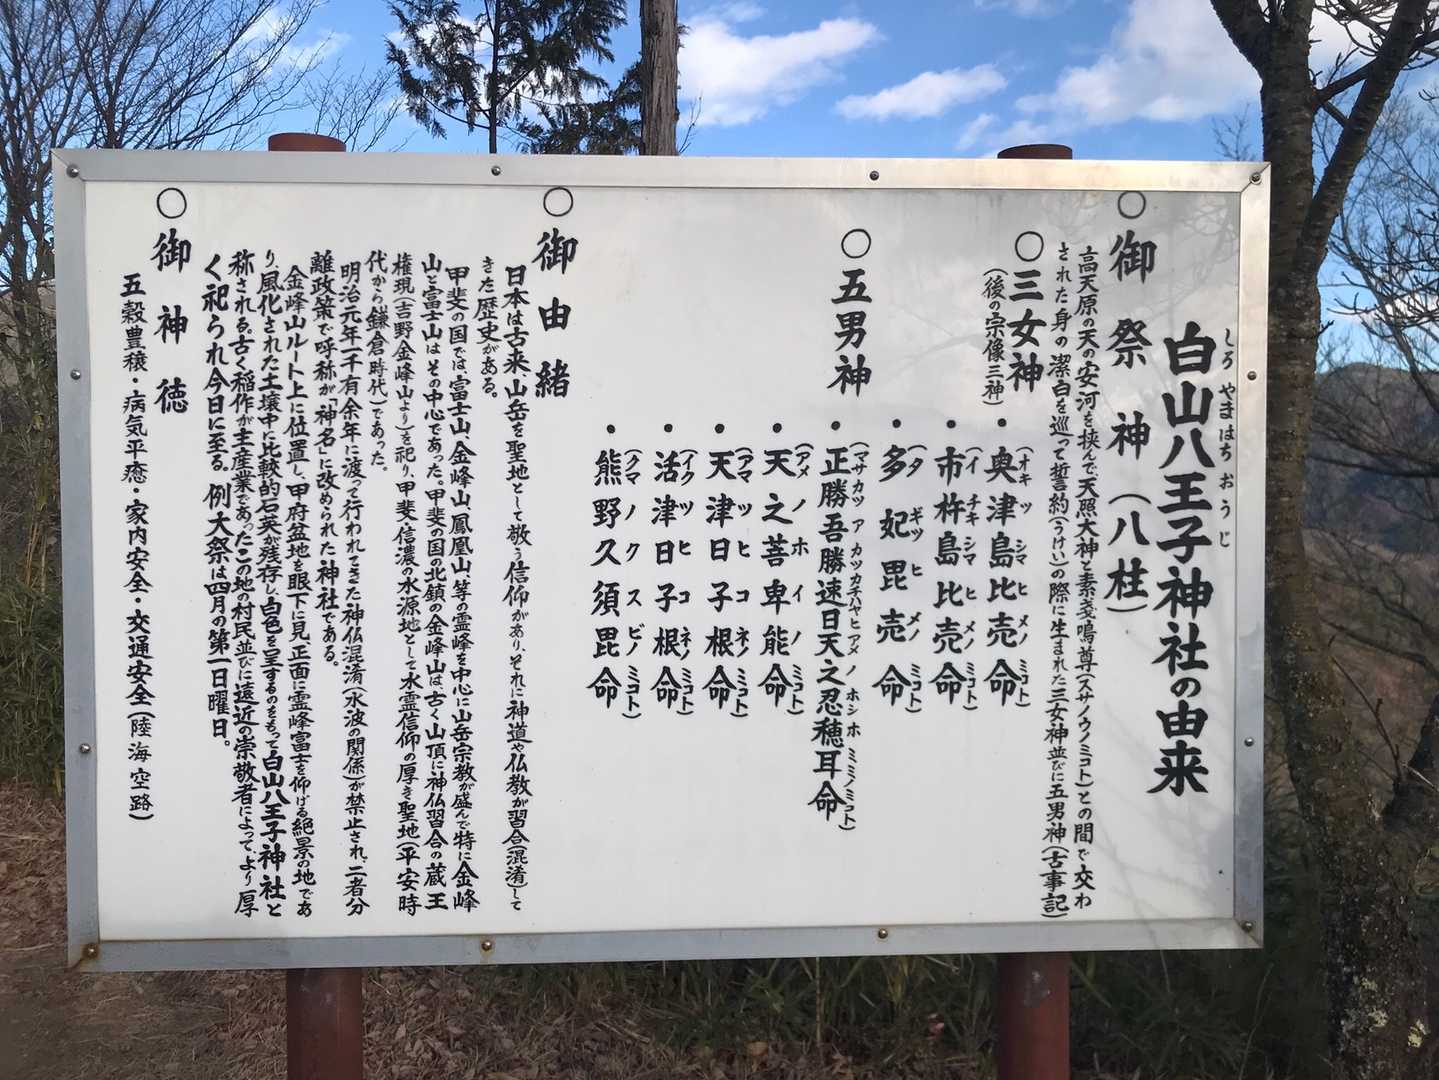 白山八王子神社の由来
しろやまはちおうじ
○御祭神(八柱)
高天原の天の安河を挟んで天照大神と素戔嗚尊(スサノウノミコト)との間で交わ
された身の潔白を巡って誓約(うけい)の際に生まれた三女神並びに五男神(古事記)
○三女神
(後の宗像三神)
・奥津島比売命
(オキツシマヒメノミコト)
・市杵島比売命
(イチキシマヒメノミコト)
・多妃毘売命
(タギツヒメノミコト)
○五男神
・正勝吾勝速日天之忍穂耳命
(マサカツアカツカチハヤヒアメノホシホミミノミコト)
・天之菩卑能命
(アメノホイノミコト)
・天津日子根命
(アマツヒコネノミコト)
・活津日子根命
(イクツヒコネノミコト)
・熊野久須毘命
(クマノクスビノミコト)
○御由緒
日本は古来、山岳を聖地として敬う信仰があり、それに神道や仏教が習合(混淆)して
きた歴史がある。
甲斐の国では、富士山、金峰山、鳳凰山、等の霊峰を中心に山岳宗教が盛んで特に金峰
山と富士山はその中心であった。甲斐の国の北鎮の金峰山は古く山頂に神仏習合の蔵王
権現(吉野金峰山より)を祀り、甲斐・信濃の水源地として水霊信仰の厚き聖地(平安時
代から鎌倉時代)であった。
明治元年一千有余年に渡って行われてきた神仏混淆(水波の関係)が禁止され、二者分
離政策で呼称が「神名」に改められた神社である。
金峰山ルート上に位置し、甲府盆地を眼下に見、正面に霊峰富士を仰げる絶景の地であ
り、風化された土壌中に比較的石英が残存し、白色を呈するのをもって白山八王子神社と
称される。古く稲作が主産業であったこの地の村民並びに遠近の崇敬者によって、より厚
く祀られ今日に至る。例大祭は四月の第一日曜日。
○御神徳
五穀豊穣・病気平癒・家内安全・交通安全(陸海空路)